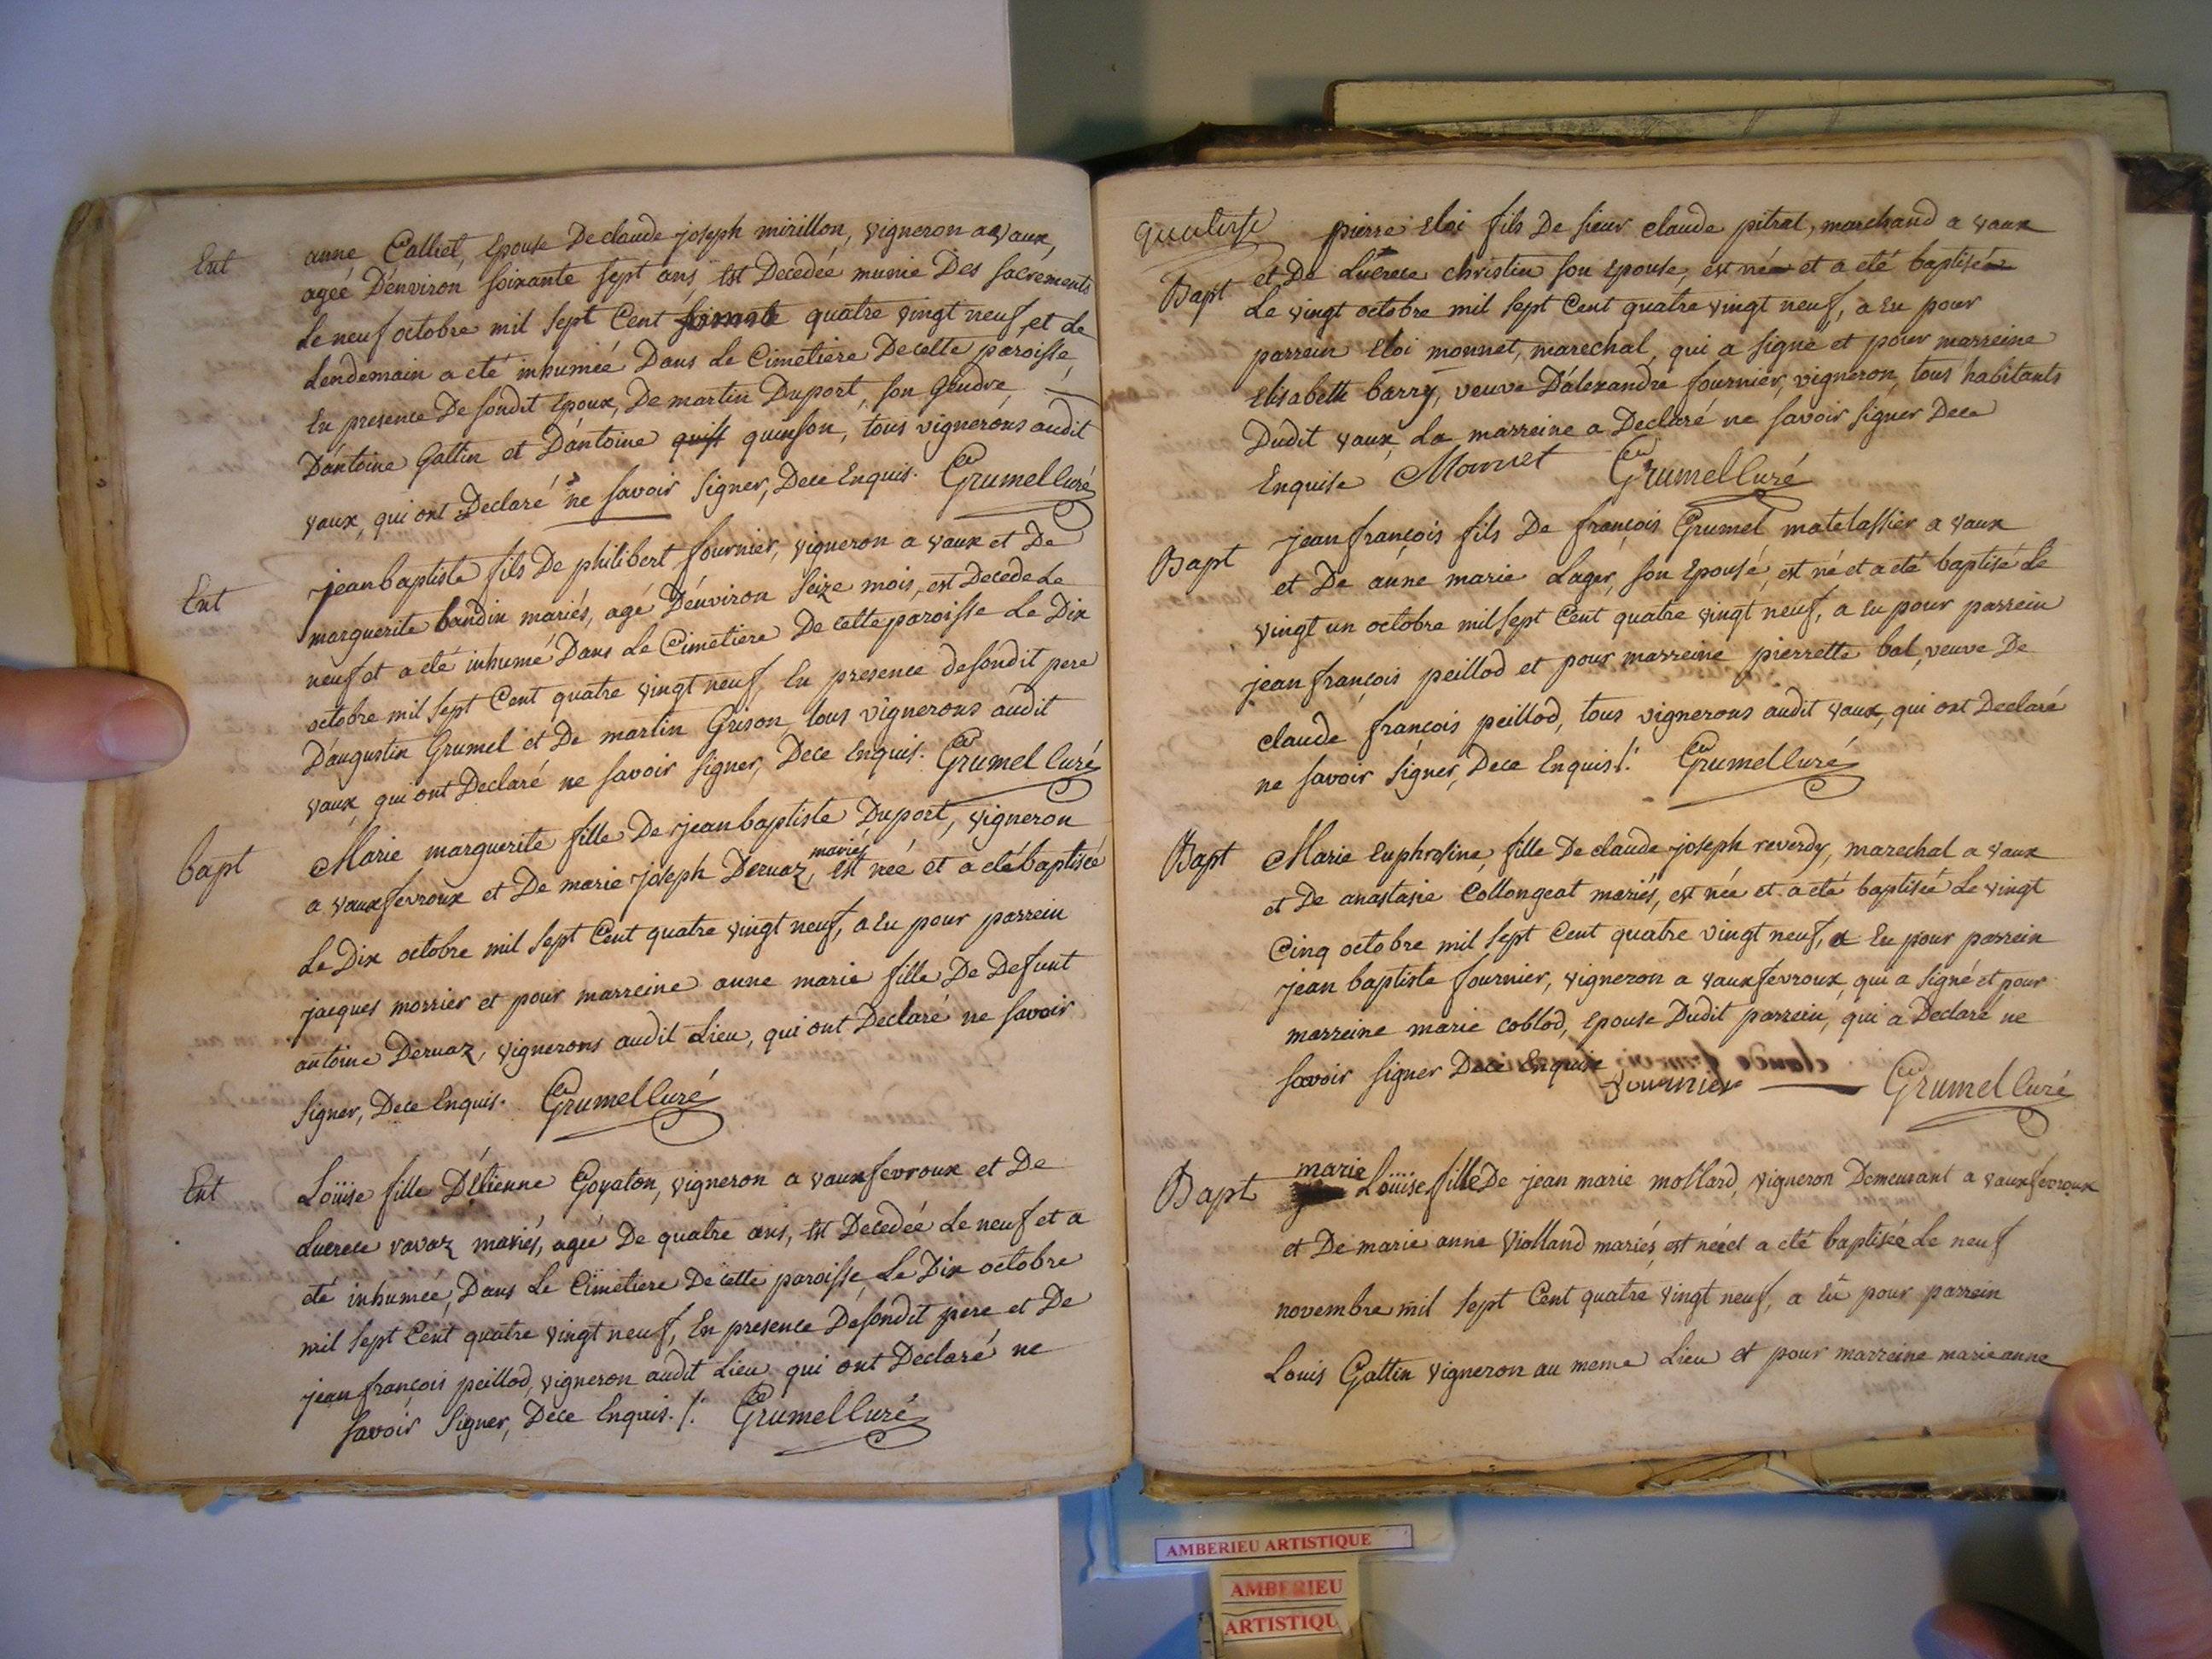 Ent
anne Calliet, Epouse De claude joseph mirillon, vigneron a vaux,
ageé D'environ soixante sept ans Est Decedée munie Des sacrements
Le neuf octobre mil sept Cent soixante quatre vingt neuf, et Le
Lendemain a eté inhumée Dans Le Cimetiere De cette paroisse,
En presence De sondit Epoux, De martin Duport, son Gendre,
D'antoine Gattin et D'antoine quist quinson, tous vignerons audit
vaux, qui ont Declaré ne savoir signer, Dece Enquis. Grumel Curé
Ent
jean baptiste fils De philibert fournier, vigneron a vaux et De
marguerite bandin mariés, agé D'environ seize mois, est Decede Le
neuf et a eté inhumé Dans Le Cimetiere De cette paroisse Le Dix
octobre mil sept Cent quatre vingt neuf, En presence de sondit pere
D'augustin Grumel et De martin Grison, tous vignerons audit
vaux, qui ont Declaré ne savoir signer, Dece Enquis. Grumel Curé
bapt
Marie marguerite fille De jean baptiste Duport, vigneron
a vauxfevroux et De marie joseph Deruaz, mariés, est née et a eté baptisée
Le Dix octobre mil sept Cent quatre vingt neuf, a Eu pour parrein
jacques morrier et pour marreine anne marie fille De Defunt
antoine Deruaz, vignerons audit Lieu, qui ont Declaré ne savoir
signer, Dece Enquis. Grumel Curé
Ent
Loüise fille D'Etienne Goyaton, vigneron a vauxfevroux et De
Lucrece ravaz mariés, ageé De quatre ans, Est Decedeé Le neuf et a
eté inhumeé, Dans Le Cimetiere De cette paroisse, Le Dix octobre
mil sept Cent quatre vingt neuf, En presence De sondit pere et De
jean françois peillod, vigneron audit Lieu qui ont Declaré ne
savoir signer, Dece Enquis./. Grumel Curé
Bapt
pierre Eloi fils De sieur claude pitrat, marchand a vaux
et De Lucrece christin son Epouse, est née et a eté baptisée
Le vingt octobre mil sept Cent quatre vingt neuf, a Eu pour
parrein Eloi monnet, marechal, qui a signé et pour marreine
Elisabeth barry, veuve D'alexandre fournier, vigneron, tous habitants
Dudit vaux, La marreine a Declaré ne savoir signer Dece
Enquise Monnet Grumel Curé
Bapt
jean françois fils De françois Grumel matelassier a vaux
et De anne marie Lager, son Epouse, est né et a eté baptisé Le
vingt un octobre mil sept Cent quatre vingt neuf, a Eu pour parrein
jean françois peillod et pour marreine pierrette bal, veuve De
claude françois peillod, tous vignerons audit vaux, qui ont Declaré
ne savoir signer, Dece Enquis./. Grumel Curé
Bapt
Marie Euphrosine fille De claude joseph reverdy, marechal a vaux
et De anastasie Collongeat mariés, est née et a eté baptisée Le vingt
Cinq octobre mil sept Cent quatre vingt neuf, a Eu pour parrein
jean baptiste fournier, vigneron a vauxfevroux, qui a signé et pour
marreine marie coblod, Epouse Dudit parrein, qui a Declaré ne
savoir signer Dece Enquise
fournier Grumel Curé
Bapt
marie Loüise fille De jean marie mollard, vigneron Demeurant a vauxfevroux
et De marie anne Violland mariés, est née et a eté baptisée Le neuf
novembre mil sept Cent quatre vingt neuf, a Eu pour parrein
Louis Gattin vigneron au meme Lieu et pour marreine marie anne
AMBERIEU ARTISTIQUE
AMBERIEU
ARTISTIQU